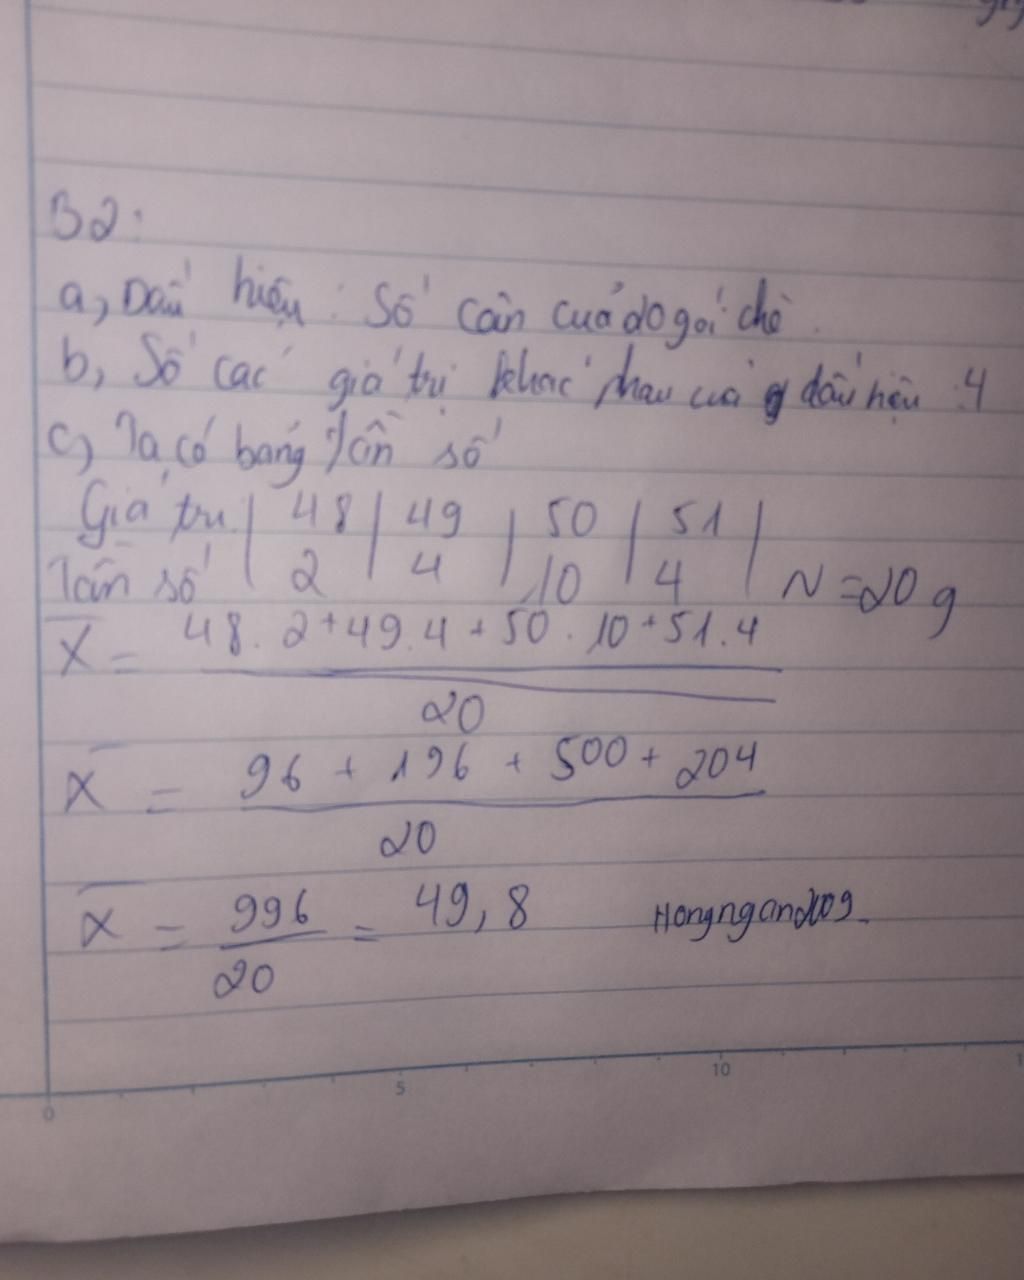 B2:
a, Dấu hiệu : Số cân của 20 gói chè.
b, Số các giá trị khác nhau của dấu hiệu : 4
c, Ta có bảng tần số
Giá trị | 48 | 49 | 50 | 51 |
Tần số | 2 | 4 | 10 | 4 | N = 20 g
X = 48. 2 + 49. 4 + 50. 10 + 51. 4
20
X = 96 + 196 + 500 + 204
20
X = 996 = 49,8 Hongngan2009
20
0 5 10